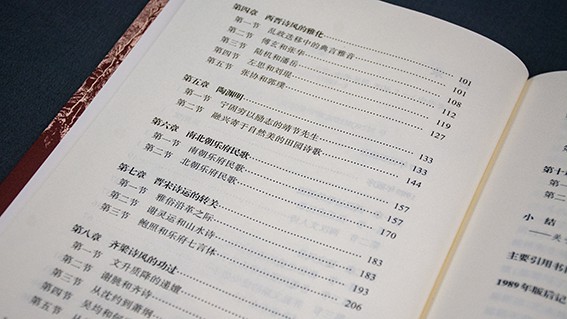 第四章 西晋诗风的雅化 101
第一节 乱政迭移中的典言雅音 101
第二节 傅玄和张华 108
第三节 陆机和潘岳 112
第四节 左思和刘琨 119
第五节 张协和郭璞 127
第五章 陶渊明 133
第一节 宁固穷以励志的靖节先生 133
第二节 融兴寄于自然美的田园诗歌 144
第六章 南北朝乐府民歌 157
第一节 南朝乐府民歌 157
第二节 北朝乐府民歌 170
第七章 晋宋诗运的转关 183
第一节 雅俗沿革之际 183
第二节 谢灵运和山水诗 193
第三节 鲍照和乐府七言体 206
第八章 齐梁诗风的功过
第一节 文升质降的递嬗
第二节 谢朓和齐诗
第三节 从沈约到萧纲
第四节 吴均和何
第五节 从
第十
小 结
——关
主要引用书目
1989年版后记